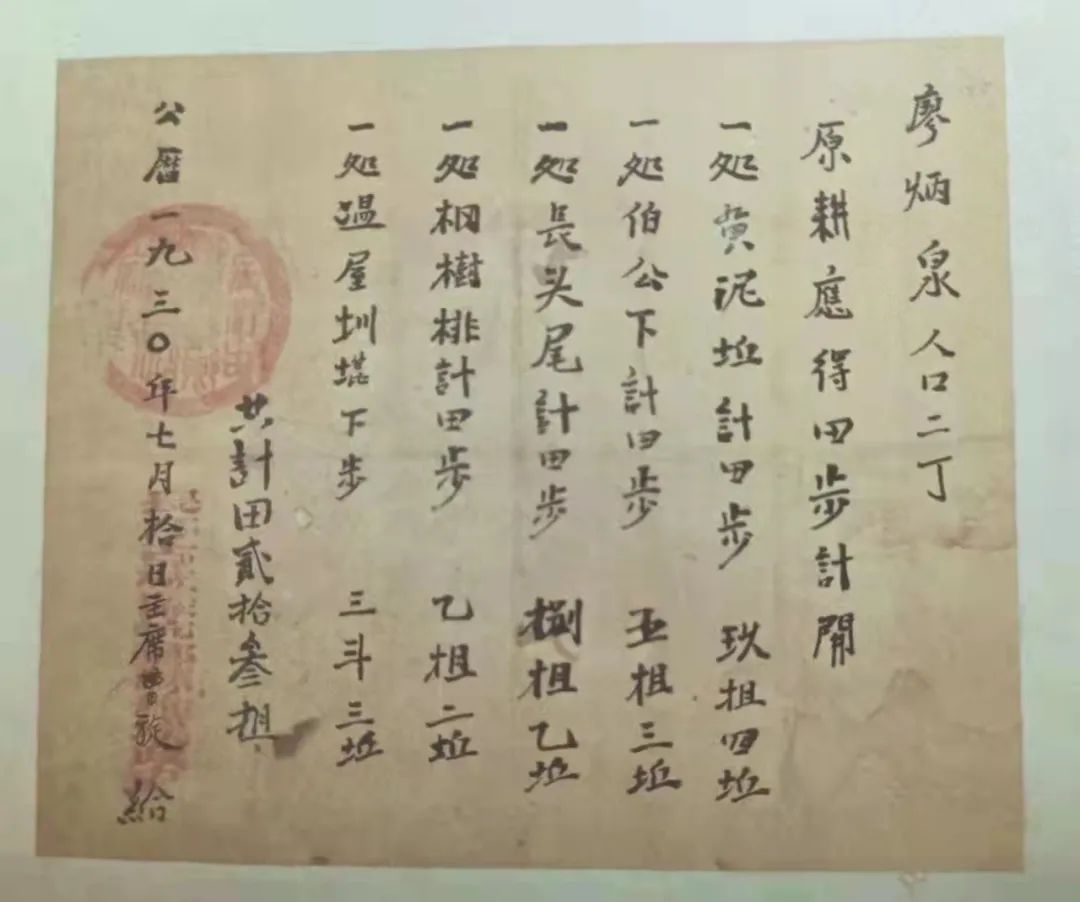 廖炳泉人口二丁
原耕應得田步計開
一处黄泥坵計田步 玖担四坵
一处伯公下計田步 五担三坵
一处長头尾計田步 捌担乙坵
一处桐樹排計田步 乙担二坵
一处温屋圳墈下步 三斗三坵
共計田貳拾叁担
公曆一九三〇年七月拾日主席曾 給